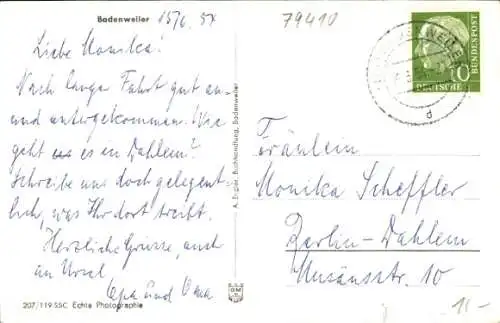 Badenweiler 15/6. 57
79410
Liebe Monika!
Nach langer Fahrt gut an-
und untergekommen. Wie
geht es in Dahlem?
Schreibe uns doch gelegent-
lich, was Ihr dort treibt.
Herzliche Grüsse, auch
an Ursel
Opa und Oma
207/119 SSC Echte Photographie
Buchhandlung, Badenweiler
10
DEUTSCHE
BUNDESPOST
d
Fräulein
Monika Scheffler
Berlin-Dahlem
10